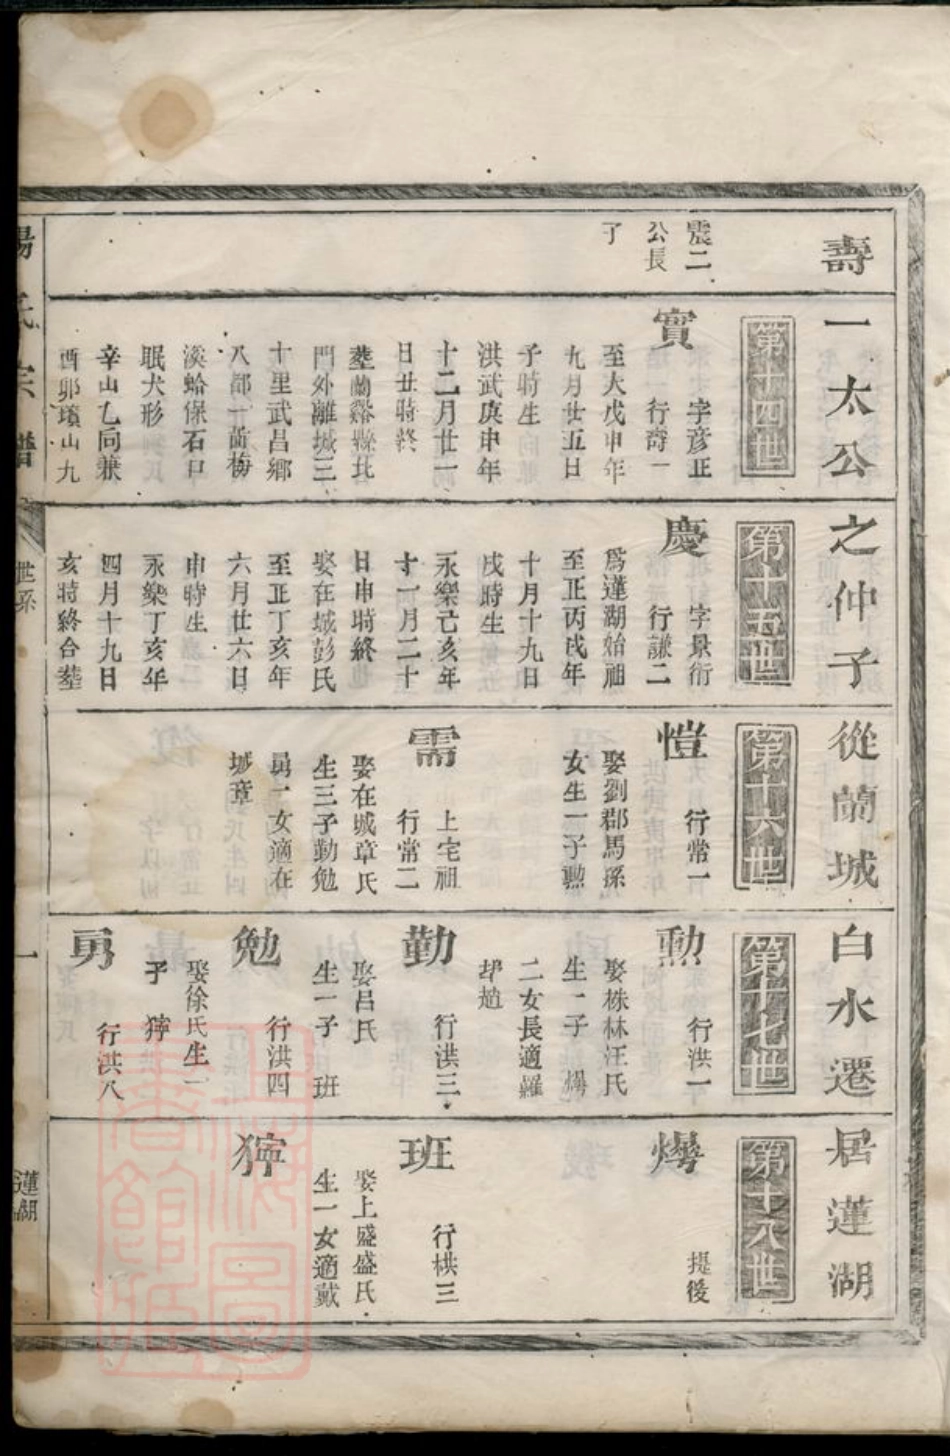 壽一太公之仲子從蘭城白水遷居蓮湖
震二
公長
子
第十四世
實
字彦正
行奇一
至大戊申年
九月廿五日
子時生
洪武庚申年
十二月廿一
日丑時終
塟蘭谿縣北
門外離城三
十里武昌鄉
八都一啚梅
溪蛤保石口
眠犬形
辛山乙向兼
酉卯墳山九
第十五世
慶
字景衍
行謙二
爲蓮湖始祖
至正丙戌年
十月十九日
戌時生
永樂己亥年
十一月二十
日申時終
娶在城彭氏
至正丁亥年
六月廿六日
申時生
永樂丁亥年
四月十九日
亥時終合塟
第十六世
愷
行常一
娶劉郡馬孫
女生一子勲
需
上宅祖
行常二
娶在城章氏
生三子勤勉
勇一女適在
城章
第十七世
勲
行洪一
娶株林汪氏
生一子 㷼
二女長適羅
勤
行洪三
娶呂氏
生一子 班
勉
行洪四
娶徐氏生一
子 㹰
勇
行洪八
第十八世
㷼
提後
班
行栱三
娶上盛盛氏
生一女適戴
㹰
宗譜
世系
一
蓮湖